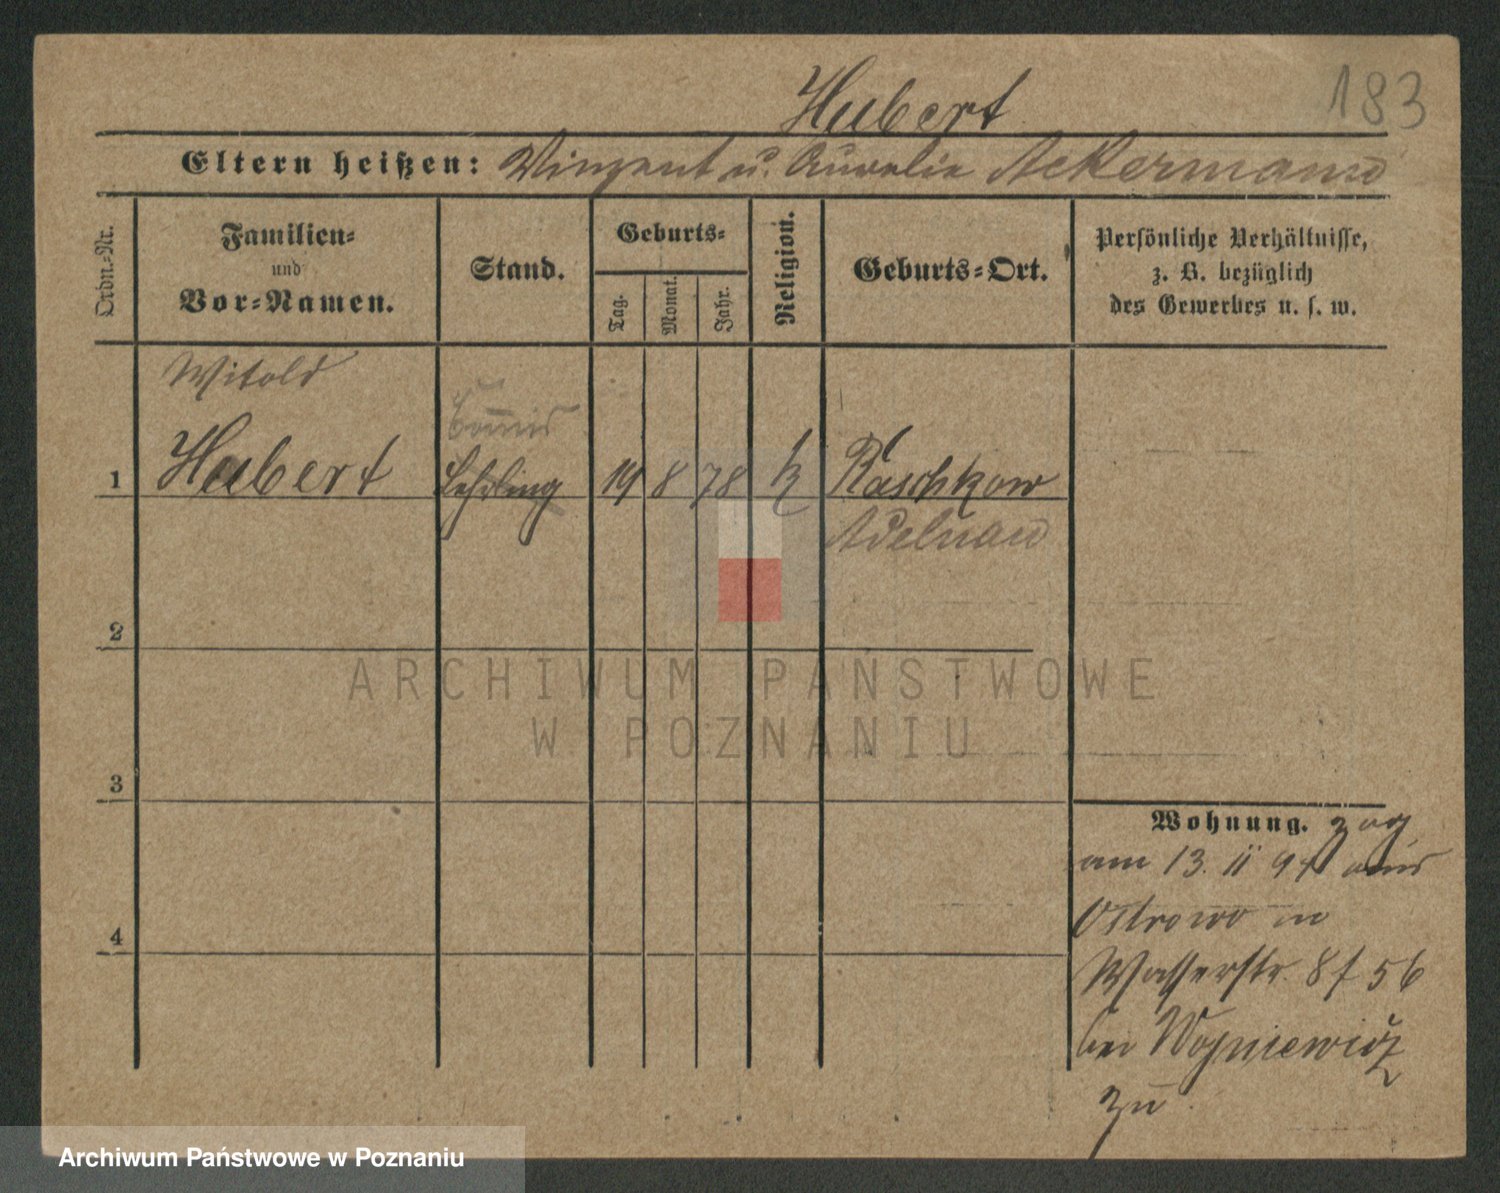 183
Hubert
Eltern heißen: Vinzent u. Aurelie Ackermann
Ordn.-Nr.
Familien-
und
Vor-Namen.
Stand.
Geburts-
Tag.
Monat.
Jahr.
Religion.
Geburts-Ort.
Persönliche Verhältnisse,
z. B. bezüglich
des Gewerbes u. s. w.
Witold
Commis
1 Hubert Lehrling 19 8 78 k Raschkow
Adelnau
2
ARCHIWUM PAŃSTWOWE
W POZNANIU
3
Wohnung. zog
am 13. 11 94 aus
Ostrowo in
4
Wasserstr. 8 f 56
bei Woyniewicz
zu.
Archiwum Państwowe w Poznaniu